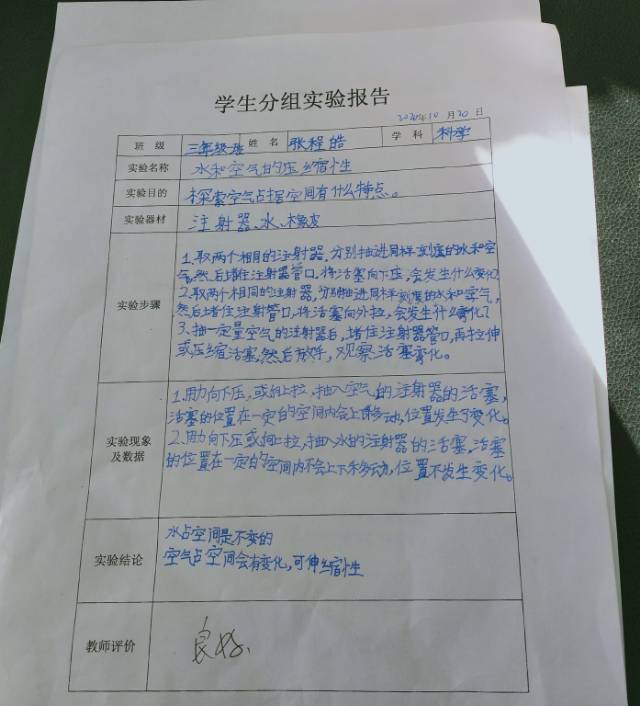 学生分组实验报告
2020年10月20日
班级 三年级班 姓名 张程皓 学科 科学
实验名称 水和空气的压缩性
实验目的 探索空气占据空间有什么特点。
实验器材 注射器、水、橡皮
实验步骤
1.取两个相同的注射器,分别抽进同样刻度的水和空
气,然后堵住注射器管口,将活塞向下压,会发生什么变化?
2.取两个相同的注射器,分别抽进同样刻度的水和空气,
然后堵住注射管口,将活塞向外拉,会发生什么变化?
3、抽一定量空气的注射器后,堵住注射器管口,再拉伸
或压缩活塞,然后放手,观察活塞变化。
实验现象
及数据
1.用力向下压,或向上拉,抽入空气的注射器的活塞,
活塞的位置在一定的空间内会上下移动,位置发生了变化。
2.用力向下压或向上拉,抽入水的注射器的活塞。活塞
的位置在一定的空间内不会上下移动,位置不发生变化。
实验结论
水占空间是不变的
空气占空间会有变化,可伸缩性
教师评价 良好、